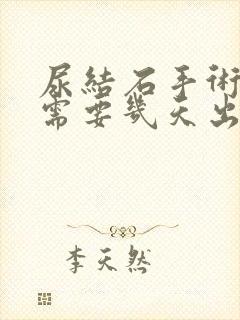 尿結石手術
需要幾天出
李天然